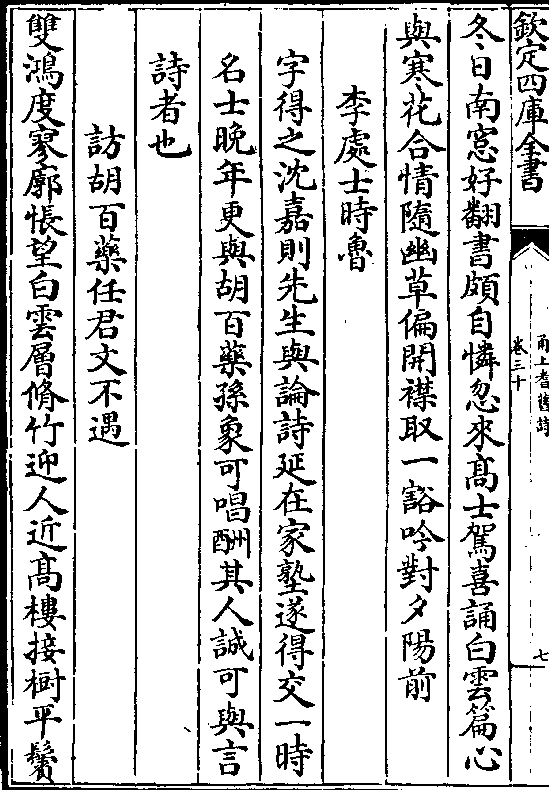 欽定四庫全書
甬上耆舊詩
卷三十
七
冬日南窓好翻書頗自憐忽來高士駕喜誦白雲篇心
與寒花合情隨幽草偏開襟取一豁吟對夕陽前
李處士時魯
字得之沈嘉則先生與論詩延在家塾遂得交一時
名士晚年更與胡百藥孫象可唱酬其人誠可與言
詩者也
訪胡百藥任君文不遇
雙鴻度寥廓悵望白雲層脩竹迎人近高樓接樹平鬢